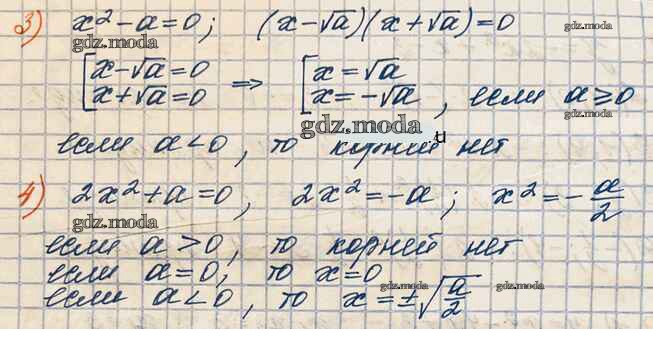 3) x² - a = 0; (x - √a)(x + √a) = 0
gdz.moda
gdz.moda
[x - √a = 0 ⇒ [x = √a
x + √a = 0 x = -√a, если a ≥ 0
gdz.moda
gdz.moda
если a < 0, то корней нет
4) 2x² + a = 0, 2x² = -a; x² = -a/2
gdz.moda
если a > 0, то корней нет
если a = 0; то x = 0
gdz.moda
gdz.moda
если a < 0, то x = ±√(a/2)